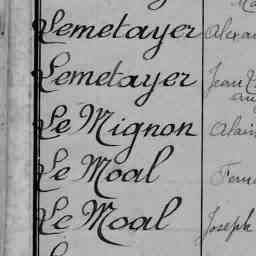 Lemetayer
Lemetayer Jean
Le Mignon Alain
Le Moal
Le Moal Joseph